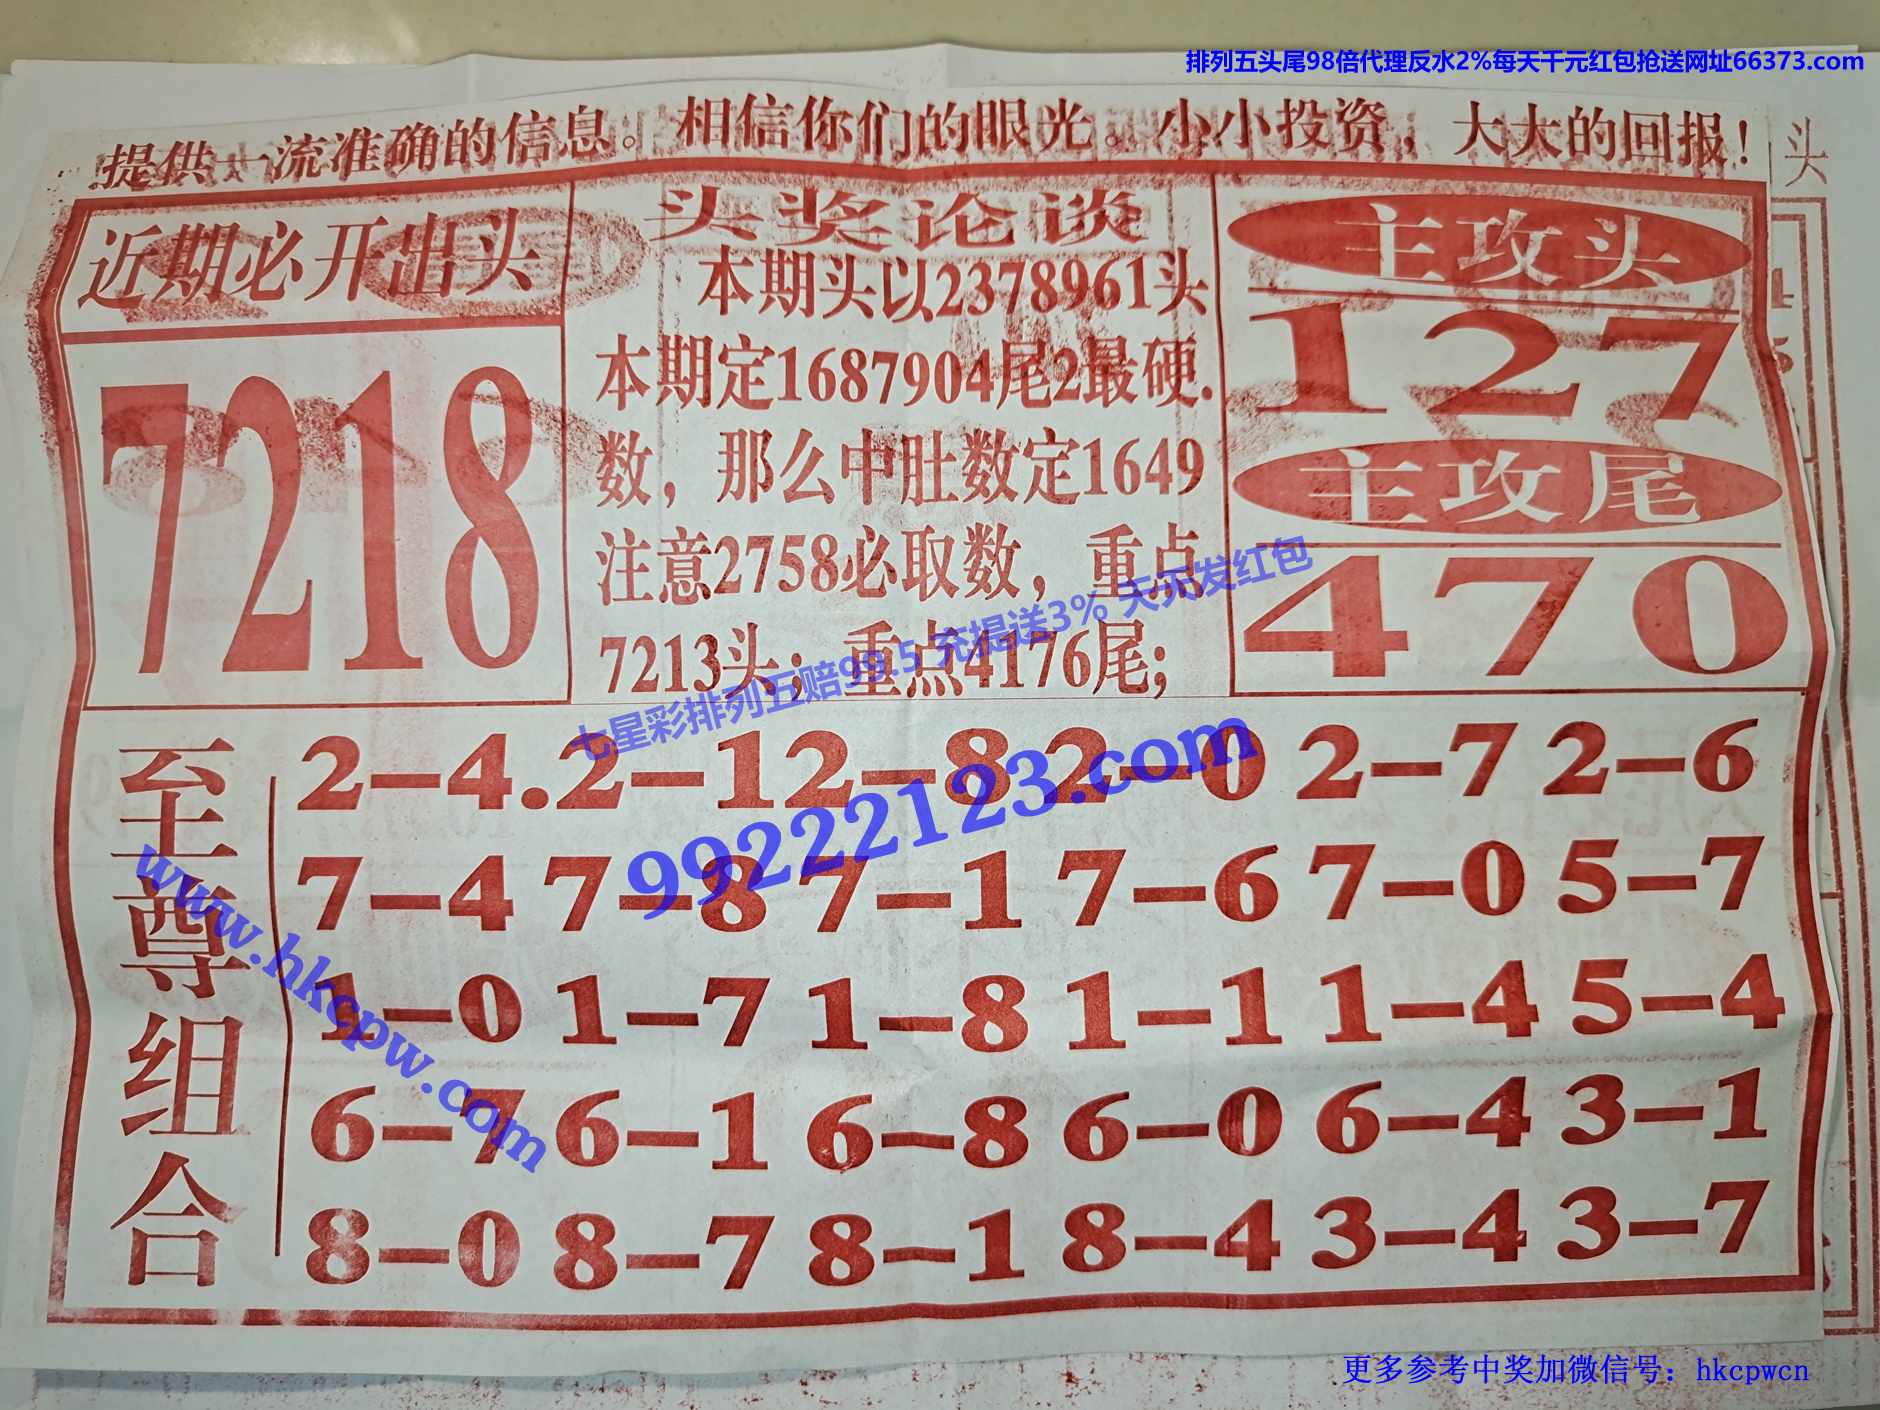 排列五头尾98倍代理反水2%每天千元红包抢送网址66373.com
提供一流准确的信息。相信你们的眼光。小小投资，大大的回报！
头
近期必开出头
7218
头奖论谈
本期头以2378961头
本期定1687904尾2最硬.
数，那么中肚数定1649
注意2758必取数，重点
7213头；重点4176尾；
主攻头
127
主攻尾
470
七星彩排列五赔99.5 充提送3% 天天发红包
99222123.com
www.hkcpw.com
至尊组合
2－4.2－12－82－0 2－7 2－6
7－4 7－8 7－1 7－6 7－0 5－7
1－0 1－7 1－8 1－1 1－4 5－4
6－7 6－1 6－8 6－0 6－4 3－1
8－0 8－7 8－1 8－4 3－4 3－7
更多参考中奖加微信号：hkcpwcn